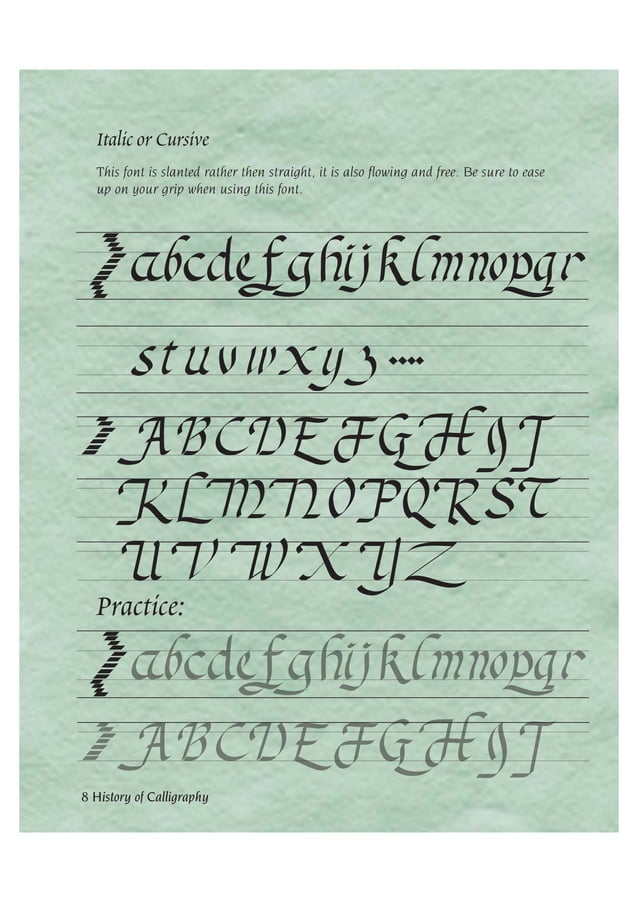 Italic or Cursive
This font is slanted rather then straight, it is also flowing and free. Be sure to ease
up on your grip when using this font.
abcdefghijklmnopqr
stuvwxyz
ABCDEFGHIJ
KLMNOPQRST
UVWXYZ
Practice:
abcdefghijklmnopqr
ABCDEFGHIJ
8 History of Calligraphy